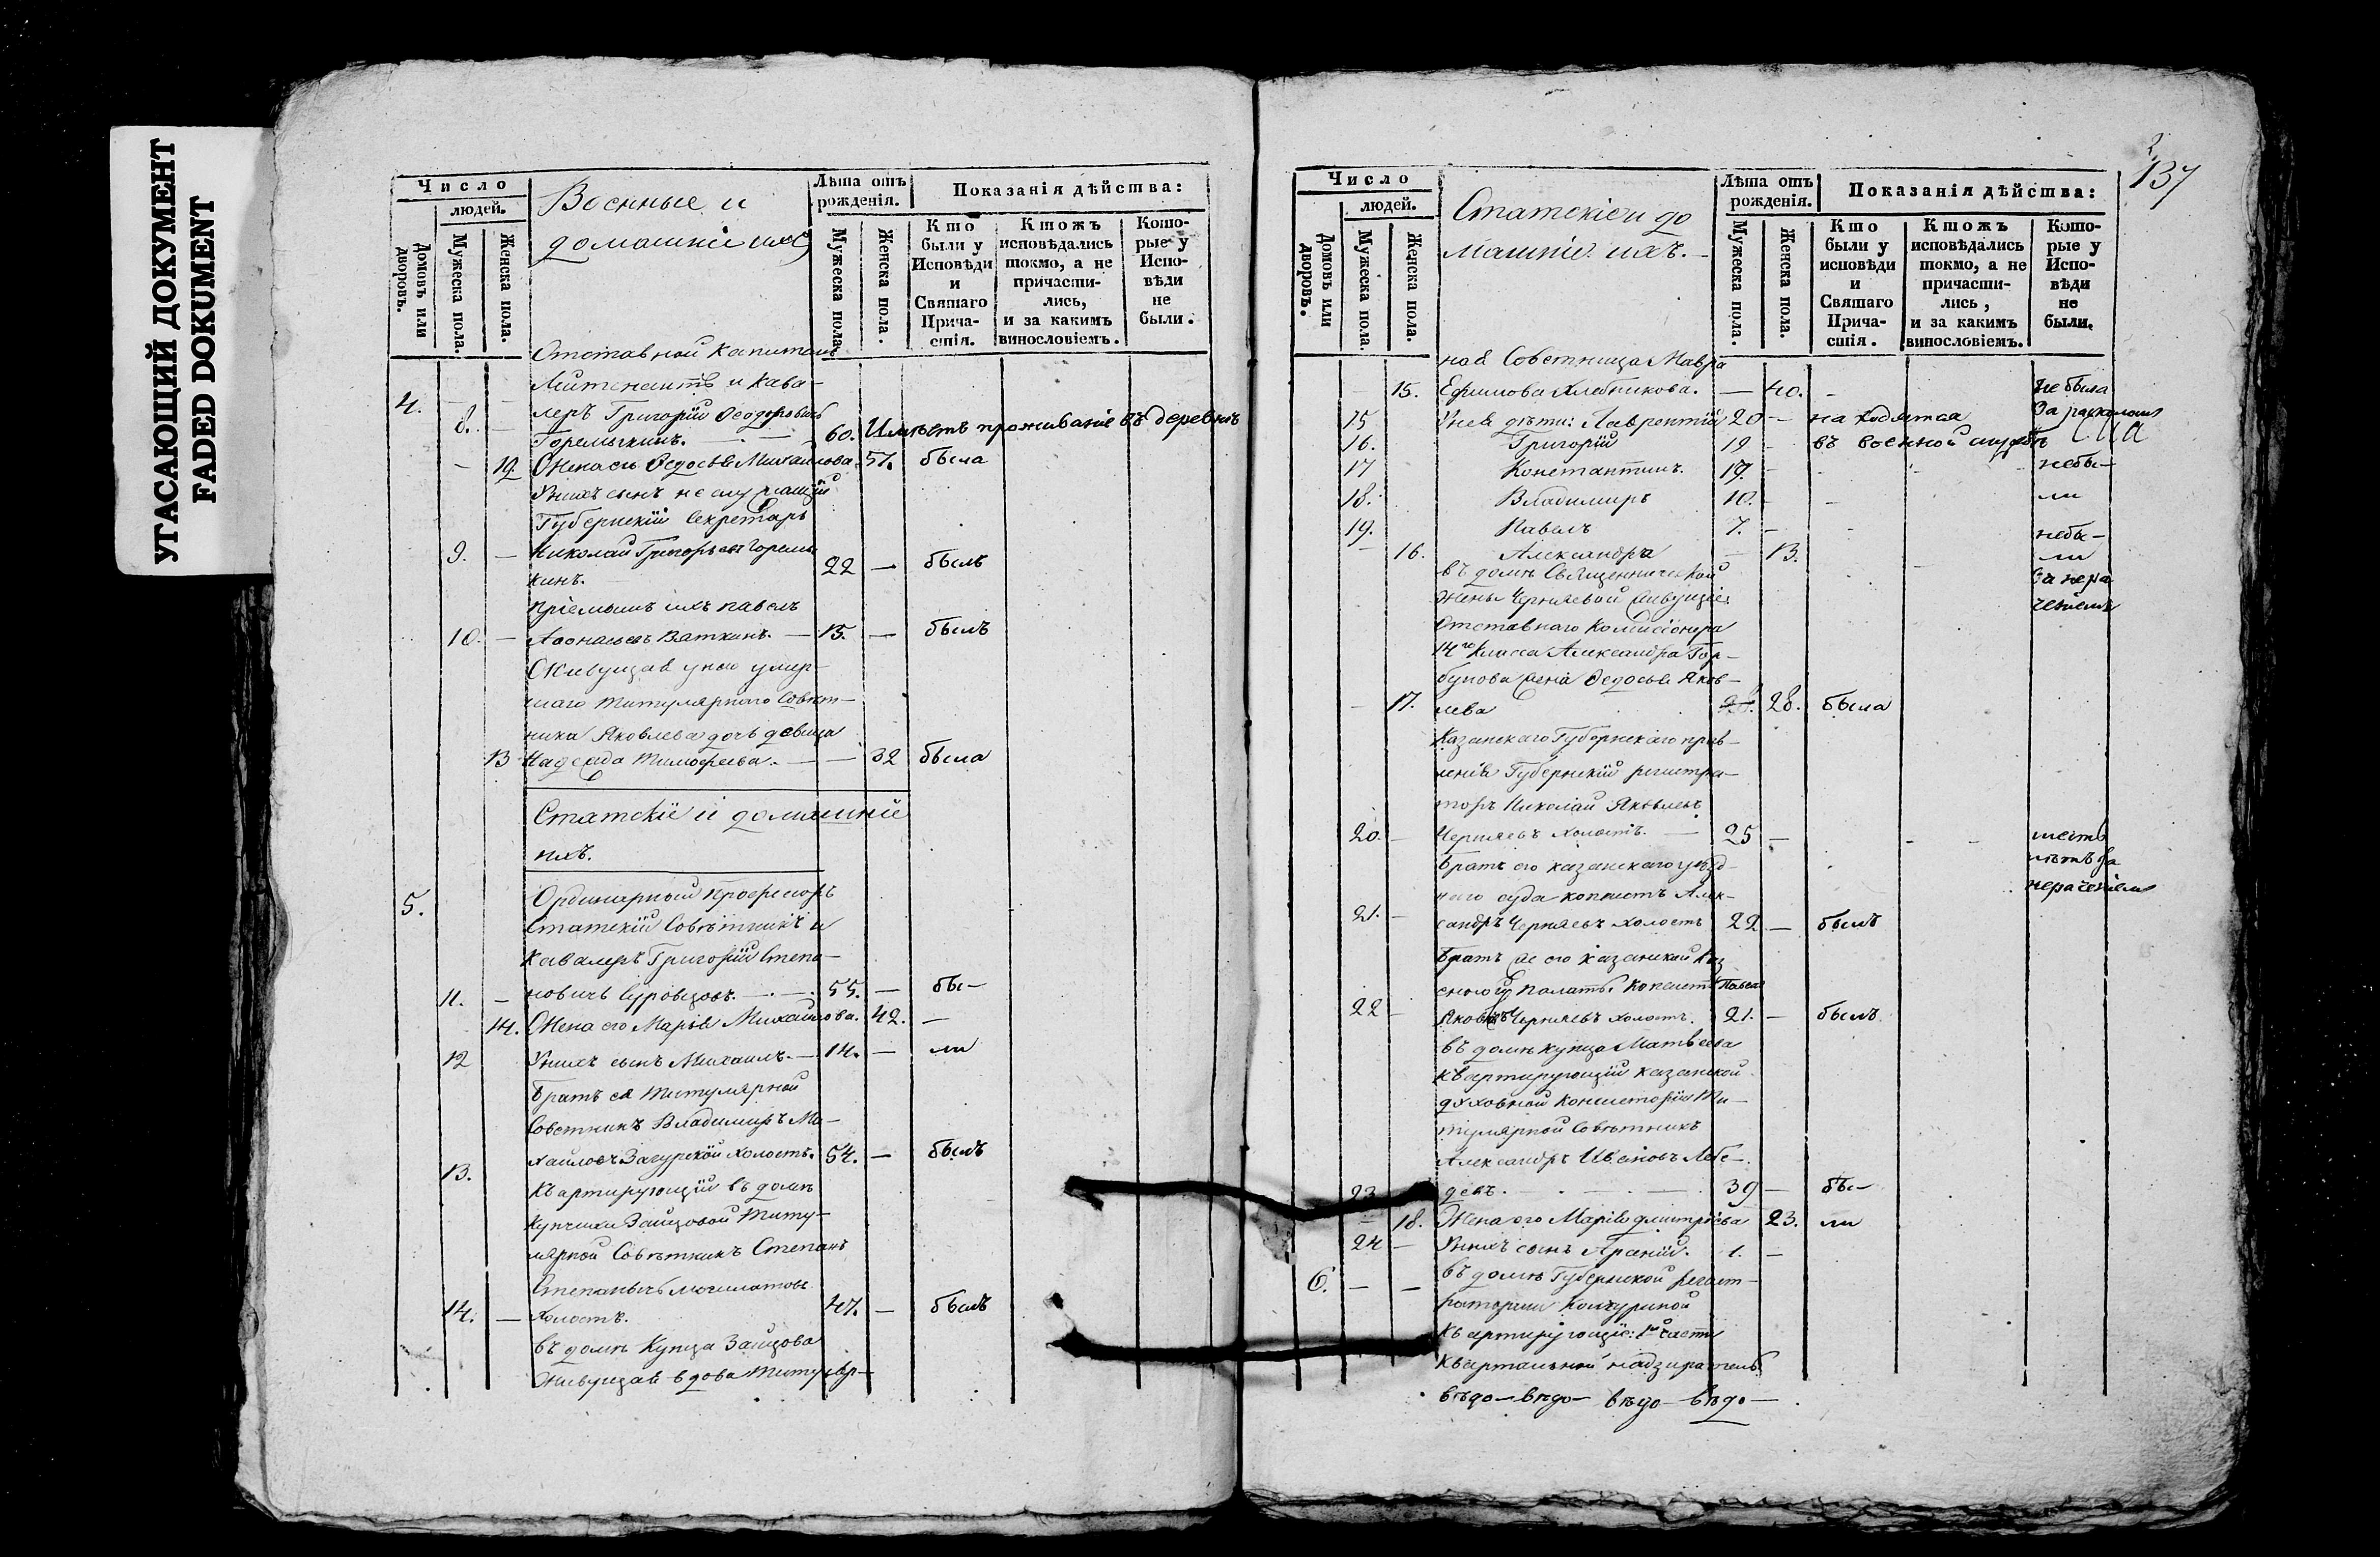 УГАСАЮЩИЙ ДОКУМЕНТ
FADED DOKUMENT
Число
людей.
Домовъ или дворовъ.
Мужеска пола.
Женска пола.
Военные и
домашніе ихъ
Лѣта отъ рожденія.
Мужеска пола.
Женска пола.
Показанія дѣйства:
Кто были у Исповѣди и Святаго Причастія.
Ктожъ исповѣдались токмо, а не причастились, и за какимъ винословіемъ.
Которые у Исповѣди не были.
Отставной Капитанъ
4. Лейтенантъ и Кава-
8. — леръ Григорій Ѳеодоровичь
Горемыкинъ. — — 60. Имѣетъ проживаніе въ деревнѣ
— 12 Жена его Ѳедосья Михаилова. 57. была
У нихъ сынъ не служащій
Губернскій Секретарь
9. — Николай Григорьевъ Горемы-
кинъ. 22 — былъ
Пріемышъ ихъ павелъ
10. — Аѳонасьевъ Ваткинъ. — 15. — былъ
Живущая у нихъ умер-
шаго титулярнаго Совѣт-
ника Яковлева дочь девица
13 Надежда Тимофеева. — — 32 была
Статскіе и домашніе
ихъ.
5. Ординарный Профессоръ
Статскій Совѣтникъ и
Кавалеръ Григорій Степа-
11. — новичь Суровцовъ. — — 55. — бы-
14. Жена его Марья Михайлова. 42. —
12 У нихъ сынъ Михаилъ. — 14. — ли
Братъ ея Титулярной
Советникъ Владимиръ Ми-
13. хайловъ Загурской холостъ. 54. — былъ
Квартирующій въ домѣ
Купчихи Зайцовой Титу-
лярной Совѣтникъ Степанъ
Степановъ
14. — Холостъ. 47. — былъ
въ домѣ Купца Зайцова
Живущая вдова Титуляр-
137
Число
людей.
Домовъ или дворовъ.
Мужеска пола.
Женска пола.
Статскіе и до
машніе ихъ. —
Лѣта отъ рожденія.
Мужеска пола.
Женска пола.
Показанія дѣйства:
Кто были у исповѣди и Святаго Причастія.
Ктожъ исповѣдались токмо, а не причастились, и за какимъ винословіемъ.
Которые у Исповѣди не были.
ная Советница Мавра
— 15. Ефимова Хлебникова. — 40. — не была
15 У нея дѣти: Лаврентій 20 — находятся за
16. Григорій 19 — въ военной службѣ
17 Константинъ. 17. — небы-
18. Владимиръ 10. — ли
19. Павелъ 7. — небы-
— 16. Александра — 13. ли
въ домѣ Священнической за нера-
жены Черняевой живущіе: ченіемъ
Отставнаго Комисіонера
14го Класса Александра Гор-
бунова жена Ѳедосья Яков-
— 17. лева 28. 28. была
Казанскаго Губернскаго прав-
ленія Губернскій регистра-
торъ Николай Яковлевъ
20. — Черняевъ холостъ. — 25 — шесть
Братъ его казанскаго уѣзд- лѣтъ за
наго суда копіистъ Алек- нераченіем
21. — сандръ Черняевъ холостъ 22 — былъ
Братъ же его казанской каз
енной палаты Копіистъ Павелъ
22 — Яковлевъ Черняевъ холостъ. 21. — былъ
въ домѣ купца Матвеева
Квартирующій казанской
духовной Консисторіи Ти-
тулярной Совѣтникъ
Александръ Ивановъ Лебе-
23 девъ. — — 39 — бы-
— 18. Жена его Марія Дмитріева 23. ли
24 — У нихъ сынъ Арсеній. 1. —
6. — — въ домѣ Губернской регист-
раторши
Квартирующіе: 1й части
Квартальной надзиратель
вѣдо- вѣдо- вѣдо- вѣдо-